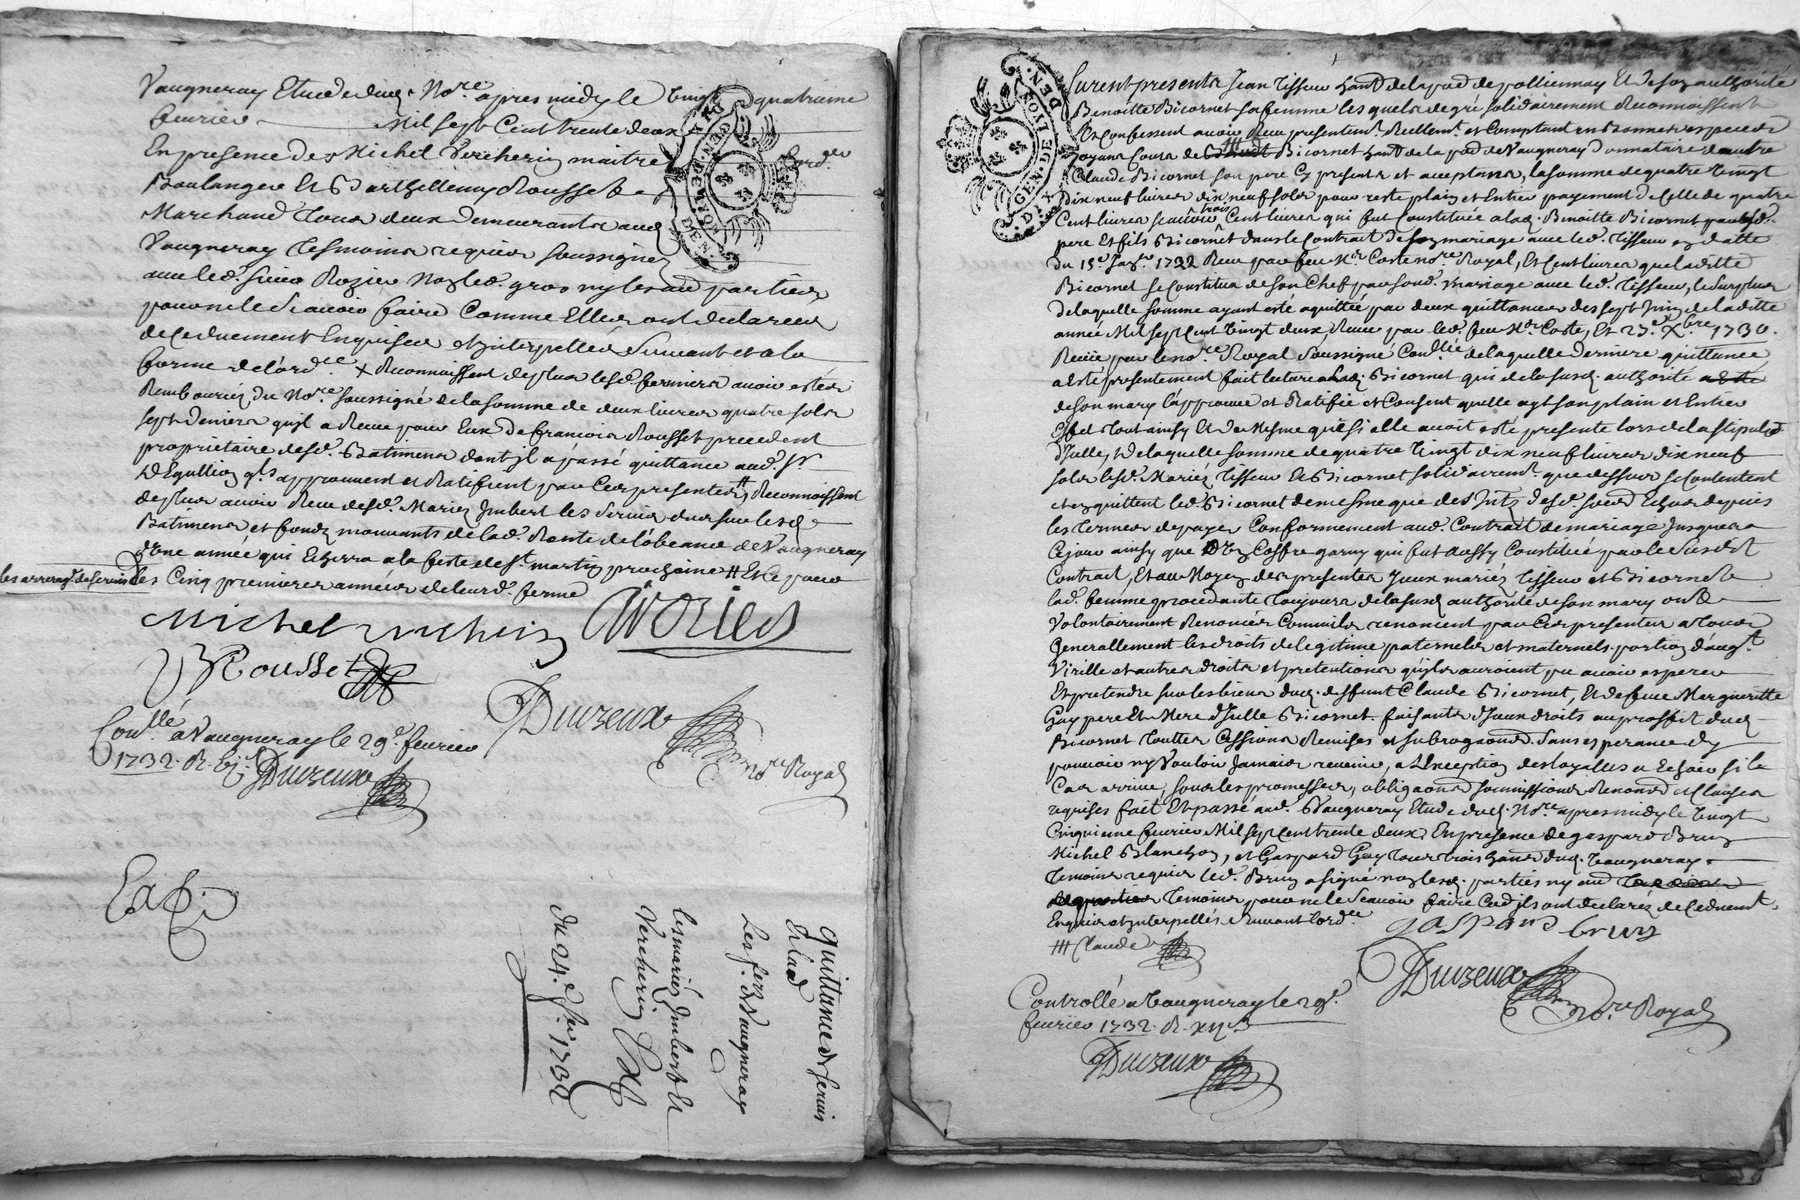 Vaugneray Etude dud. No.re apres midy le vingt quatrieme
fevrier Mil sept Cent trente deux
En presence de Michel Vercherin maitre Cord.er
Boulanger Et Barthellemy Rousset
Marchand tous deux demeurants aud.
Vaugneray tesmoins requis soussignez
avec led. sieur Rozier Non led. gros ny les aud parties
pour ne le scavoir faire Comme Elles ont declarees
de ce duement Enquises et interpellees suivant et a la
forme de l'ord.ce x Reconnoissent de plus lesd. fermiers avoir estés
Rembourcéz du No.re soussigné de la somme de deux livres quatre sols
sept deniers qu'il a Receu pour Eux de francois Rousset precedent
proprietaire desd. Batimens dont il a passé quittance aud. Sr.
D'Egullion qls approuvent et Ratifient par Ces presentes # Reconnoissent
de plus avoir Receu desd. Mariéz Imbert les servis deus sur lesd.
Batimens et fonds mouvants de lad. Rente de l'obeance de Vaugneray
d'une année qui Echerra a la feste de St. martin prochaine # Et ce pour
les arrerag. de servis des Cinq premieres années de leurd. ferme
Michel vercherin
Rousset
Duvzeux
no.re Royal
Con.llé a Vaugneray le 29e. fevrier
1732. R. 6s. Duvzeux
Exp.
quittance de servis
Et lad
Les fers de Vaugneray
les mariéz Imbert Et
Vercherin
du 24e. fev. 1732
Furent presents Jean Tisseur hab.t de la par. de pollionnay Et de son authorité
Benoitte Bicornet sa femme lesquels de gré solidairement Reconnoissent
Et Confessent avoir Receu presentem.t Reellem.t et Comptant en bonnes especes
ayant cours de Bicornet hab.t de la par. de Vaugneray donnataire
Claude Bicornet son pere Cy present et acceptans, la somme de quatre vingt
Dix neuf livres dix neuf sols pour reste plain et Entier payement de Celle de quatre
Cent livres scavoir trois Cent livres qui fut Constituée a lad. Benoitte Bicornet par
pere Et fils Bicornet dans le Contrat de son mariage avec led. Tisseur en datte
du 15e. Janr. 1722 Receu par feu Me. Coste no.re Royal, Et Cent livres que la ditte
Bicornet se Constitua de son Chef par sond. mariage avec led. Tisseur, le surplus
de laquelle somme ayant esté aquittée par deux quittances des sept Juin de la ditte
année Mil sept Cent vingt deux Receue par led. feu Me. Coste, Et 27e. Xbre. 1730.
Receue par le no.re Royal soussigné Con.llée de laquelle derniere quittance
a Esté presentement fait lecture a lad. Bicornet qui de la susd. authorité
de son mary l'approuve et Ratifie et Consent quelle ayt son plain et Entier
Effet tout ainsy Et de Mesme que si elle avoit esté presente lors de la stipulat.
d'Icelle, Et de laquelle somme de quatre vingt dix neuf livres dix neuf
sols lesd. Mariéz Tisseur et Bicornet solidairem.t que dessus se Contentent
et en quittent led. Bicornet de mesme que des Intz. desd. sommes Echus depuis
les termes de payer Conformement aud. Contrat de mariage Jusques a
Ce jour ainsy que d'un Coffre garny qui fut aussy Constitué par le susdit
Contrat, Et au Moyen des presentes Iceux mariéz Tisseur et Bicornet
lad. femme procedante toujours de la susd. authorité de son mary ont
volontairement Renoncés Comme ils renoncent par Ces presentes a tous
Generallement les droits de legitime paternels et maternels portion d'aug.t
Virille et autres droits et pretentions qu'ils auroient pu avoir esperer
Et pretendre sur les biens dud. deffunt Claude Bicornet, Et de feue Margueritte
Gay pere Et Mere d'Icelle Bicornet. faisants d'Iceux droits au proffit dud.
Bicornet toutte Cessions Remises et subrogaons. sans esperance d'y
pouvoir ny vouloir Jamais revenir, a L'exception des loyalles a Echoir si le
Cas arrive, sous les promesses, obligaons. soumissions Renonc. et Clauses
requises fait Et passé aud. Vaugneray Etude dud. No.re apres midy le vingt
Cinquieme fevrier Mil sept Cent trente deux En presence de gaspard Brun
Michel Blanchon, et Gaspard Gay tous trois hab.ts dud. Vaugneray
temoins requis led. Brun a signé non lesd. parties ny aud
temoins pour ne le scavoir faire Ce qu'ils ont declaréz de Ce duem.t
Enquis et interpellés suivant l'ord.ce
gaspard brun
### Claude
Duvzeux no.re Royal
Controllé a Vaugneray le 29e.
fevrier 1732. R. xijs.
Duvzeux
GEN. DE LYON